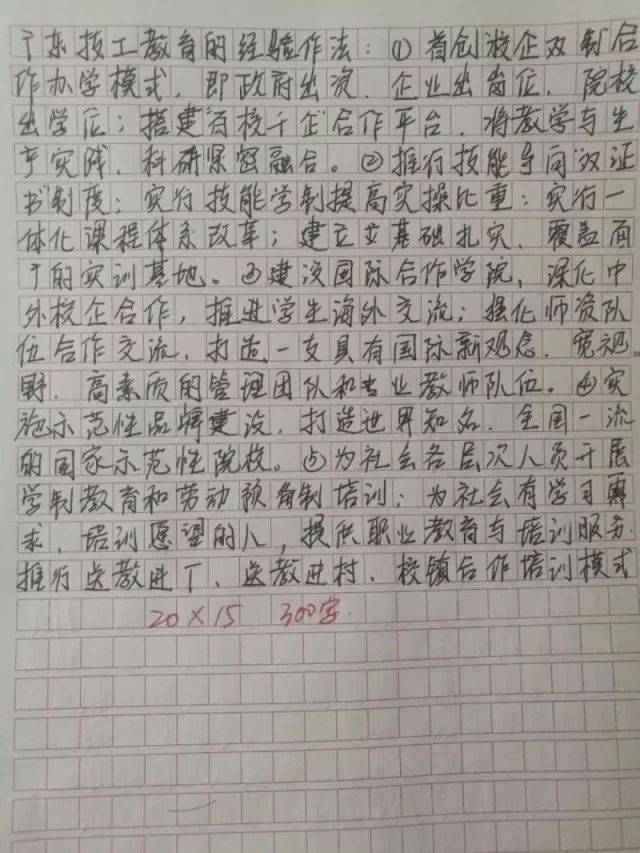 广东技工教育的经验作法：①首创校企双制合
作办学模式，即政府出资、企业出岗位、院校
出学位；搭建"百校千企"合作平台，将教学与生
产实践、科研紧密融合。②推行技能导向"双证
书"制度；实行技能学制提高实操比重；实行一
体化课程体系改革；建立立基础扎实、覆盖面
广的实训基地。③建设国际合作学院，深化中
外校企合作，推进学生海外交流；强化师资队
伍合作交流，打造一支具有国际新观念、宽视
野、高素质的管理团队和专业教师队伍。④实
施示范性品牌建设，打造世界知名、全国一流
的国家示范性院校。⑤为社会各层次人员开展
学制教育和劳动预备制培训；为社会有学习需
求、培训愿望的人，提供职业教育与培训服务
推行送教进厂、送教进村、校镇合作培训模式
20×15 300字.